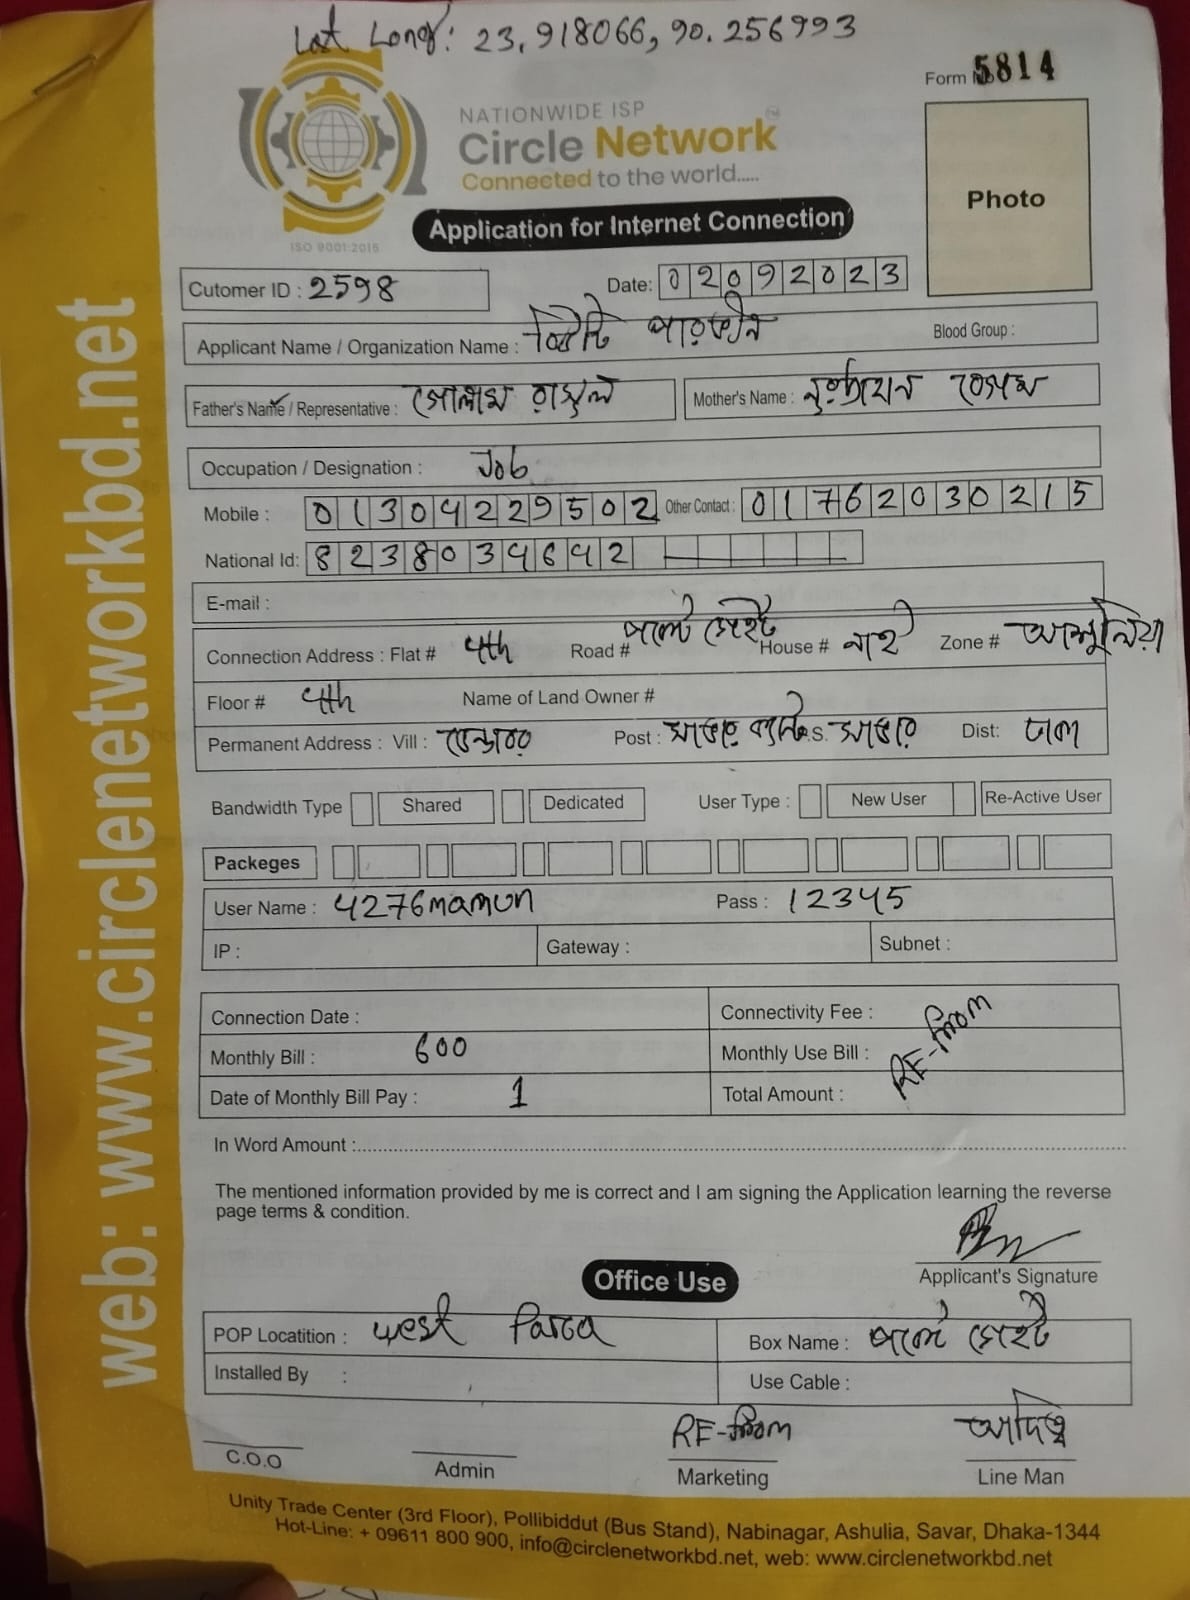 Lat Long: 23.918066, 90.256993
Form No 5814
NATIONWIDE ISP
Circle Network
Connected to the world.....
ISO 9001:2015
Photo
Application for Internet Connection
Cutomer ID : 2598 Date: 02092023
Applicant Name / Organization Name : পারভীন Blood Group :
Father's Name / Representative : গোলাম রাসুল Mother's Name : বেগম
Occupation / Designation : Job
Mobile : 01304229502 Other Contact : 01762030215
National Id: 8238034642
E-mail :
Connection Address : Flat # 4th Road # গেইট House # নাই Zone # আশুলিয়া
Floor # 4th Name of Land Owner #
Permanent Address : Vill : Post : সাভার P.S. সাভার Dist: ঢাকা
Bandwidth Type Shared Dedicated User Type : New User Re-Active User
Packeges
User Name : 4276mamun Pass : 12345
IP : Gateway : Subnet :
Connection Date : Connectivity Fee :
Monthly Bill : 600 Monthly Use Bill : RE-from
Date of Monthly Bill Pay : 1 Total Amount :
In Word Amount :
The mentioned information provided by me is correct and I am signing the Application learning the reverse
page terms & condition.
Applicant's Signature
Office Use
POP Locatition : west Parca Box Name : গেইট
Installed By : Use Cable :
RE-from
C.O.O Admin Marketing Line Man
Unity Trade Center (3rd Floor), Pollibiddut (Bus Stand), Nabinagar, Ashulia, Savar, Dhaka-1344
Hot-Line: + 09611 800 900, info@circlenetworkbd.net, web: www.circlenetworkbd.net
web: www.circlenetworkbd.net